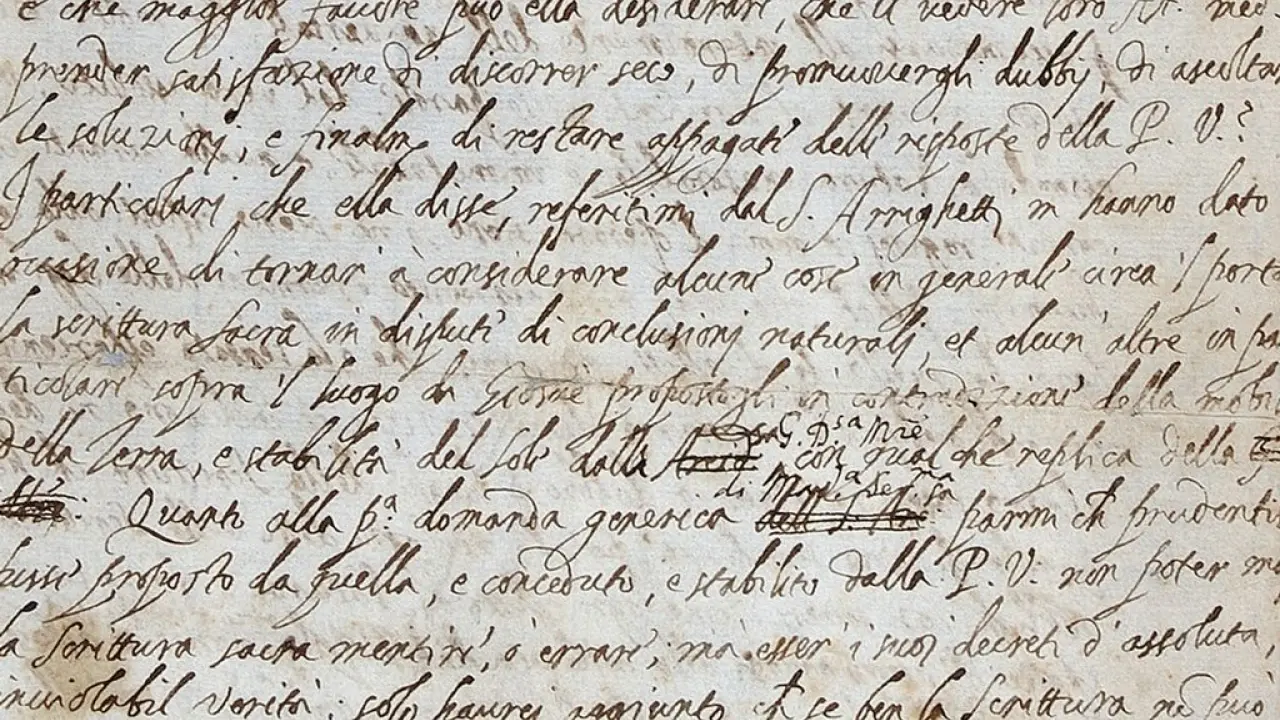 e che maggior favore può ella desiderare, che il vedere loro AA. med
prender satisfazione di discorrer seco, di promuovergli dubbij, di ascoltar
le soluzionj, e finalm. di restare appagate delle risposte della P. V.?
I particolarj che ella disse, referitimi dal S. Arrighetti m hanno dato
occasione di tornar à considerare alcune cose in generale circa 'l porta
la scrittura sacra in dispute di conclusionj naturalj, et alcun' altre in pa
ticolare sopra 'l luogo di Giosuè propostogli in contradizione della mobil
della Terra, e stabilità del Sole dalla G. D.sa M.re con qualche replica della
Quanto alla p.a domanda generica di Mad.a Ser.ma parmi ch prudentis
fusse proposto da quella, e conceduto, e stabilito dalla P. V. non poter ma
la Scrittura sacra mentire, ò errare; mà esser i suoi decreti d' assoluta,
inviolabil verità; solo haurej aggiunto ch se ben la Scrittura nō può